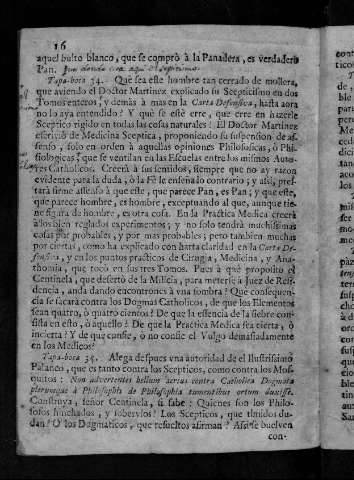 16
aquel bulto blanco, que se comprò à la Panadera, es verdadero
Pan.
Tapa-boca 34. Què sea este hombre tan cerrado de mollera,
que aviendo el Doctor Martinez explicado su Scepticismo en dos
Tomos enteros, y demàs à mas en la Carta Defensiva, hasta aora
no lo aya entendido! Y què se estè erre, que erre en hazerle
Sceptico rigido en todas las cosas naturales! El Doctor Martinez
escriviò de Medicina Sceptica, proponiendo su suspension de as-
senso, solo en orden à aquellas opiniones Philosoficas, ò Phi-
siologicas, que se ventilan en las Escuelas entre los mismos Auto-
res Catholicos. Creerà à sus sentidos, siempre que no ay razon
evidente para la duda, ò la Fè le enseña lo contrario; y assi, pres-
tarà firme assenso à que este, que parece Pan, es Pan; y que este,
que parece hombre, es hombre, exceptuando al que, aunque tie-
ne figura de hombre, es otra cosa. En la Practica Medica creerà
à los bien reglados experimentos; y no solo tendrà muchissimas
cosas por probables, y por mas probables; pero tambien muchas
por ciertas, como ha explicado con harta claridad en la Carta De-
fensiva, y en los puntos practicos de Cirugia, Medicina, y Ana-
thomia, que tocò en sus tres Tomos. Pues à què proposito el
Centinela, que desertò de la Milicia, para meterse à Juez de Resi-
dencia, anda dando encontrones à vna sombra? Què consequen-
cia se sacarà contra los Dogmas Catholicos, de que los Elementos
sean quatro, ò quatro cientos? De que la essencia de la fiebre con-
sista en esto, ò aquello? De que la Practica Medica sea cierta, ò
incierta? Y de que consie, ò no consie el Vulgo demasiadamente
en los Medicos?
Tapa-boca 35. Alega despues vna autoridad de el Ilustrissimo
Palanco, que es tanto contra los Scepticos, como contra los Mos-
quitos: Non advertentes bellum acrius contra Catholica Dogmata
plerumque à Philosophis de Philosophia tumentibus ortum duxisse.
Construya, señor Centinela, si sabe: Quienes son los Philo-
sofos hinchados, y sobervios? Los Scepticos, que timidos du-
dan? O los Dogmaticos, que resueltos afirman? Assi se buelven
con-